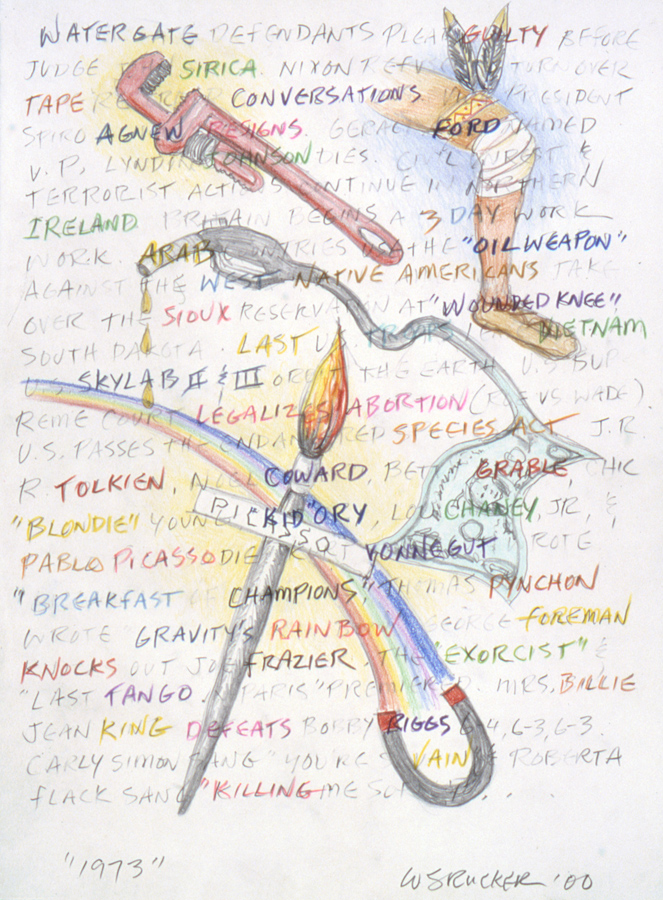 WATERGATE DEFENDANTS PLEA GUILTY BEFORE
JUDGE SIRICA. NIXON REFUS TURN OVER
TAPE CONVERSATIONS. PRESIDENT
SPIRO AGNEW RESIGNS. GERAL FORD NAMED
V.P. LYNDON JOHNSON DIES. CIVIL UNREST &
TERRORIST ACTIONS CONTINUE IN NORTHERN
IRELAND. BRITAIN BEGINS A 3 DAY WORK
WORK. ARAB COUNTRIES USE THE "OIL WEAPON"
AGAINST THE WEST. NATIVE AMERICANS TAKE
OVER THE SIOUX RESERVATION AT "WOUNDED KNEE"
SOUTH DAKOTA. LAST U.S. TROOPS VIETNAM
U.S. SKYLAB II & III ORBIT THE EARTH. U.S. SUP
REME COURT LEGALIZES ABORTION (ROE VS WADE).
U.S. PASSES THE ENDANGERED SPECIES ACT. J.R.
R. TOLKIEN, NOEL COWARD, BETTY GRABLE, CHIC
"BLONDIE" YOUNG "KID" ORY, LON CHANEY, JR, &
PABLO PICASSO DIE. VONNEGUT WROTE
"BREAKFAST OF CHAMPIONS" THOMAS PYNCHON
WROTE GRAVITY'S RAINBOW. GEORGE FOREMAN
KNOCKS OUT JOE FRAZIER. THE "EXORCIST" &
"LAST TANGO IN PARIS" PREMIERED. MRS. BILLIE
JEAN KING DEFEATS BOBBY RIGGS 6-4, 6-3, 6-3.
CARLY SIMON SANG "YOU'RE SO VAIN" & ROBERTA
FLACK SANG "KILLING ME SOFTLY . . .
PICASSO
"1973"
WS RUCKER '00